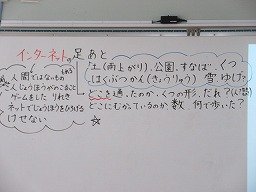 インターネットの足あと
土(雨上がり)、公園、すなば、くつ
はくぶつかん(きょうりゅう) 雪、ゆげた
人間ではないもの
人じょうほうがのこること
ゲームをした りれき
ネットでじょうほうをひろげる
けせない
どこを通ったのか、くつの形、だれ?(人間)
どこにむかっているのか 数 何で歩いた?
☆